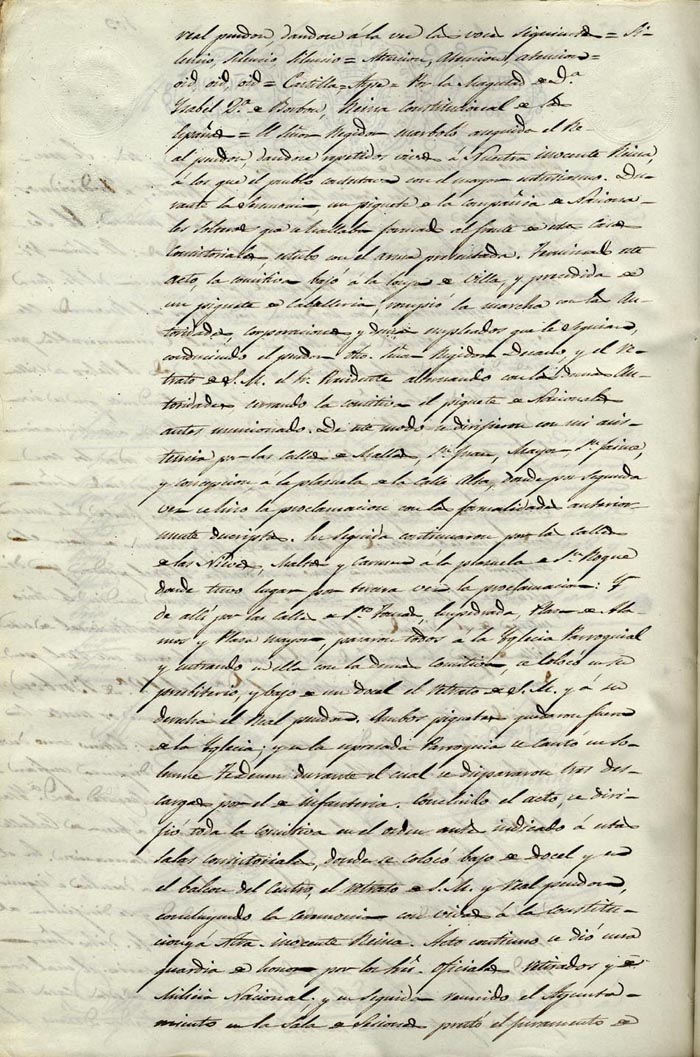 real pendon, dandose á la vez las voces siguientes = Si-
lencio, Silencio Silencio = Atencion, atencion, atencion =
oid, oid, oid = Castilla = = Por la Magestad de D.ª
Ysabel 2.ª de Borbon, Reina constitucional de las
Españas = El Señor Regidor enarboló enseguida el Re-
al pendon, dandose repetidos vivas á Nuestra inocente Reina,
á los que el pueblo contestava con el mayor entusiasmo. Du-
rante la Ceremonia, un piquete de la compañia de Naciona-
les Volun.s que se hallaba formada al frente de estas Casas
Consistoriales estubo con el arma presentada. Terminado este
acto, la comitiva bajó á la de Villa, y precedida de
un piquete de Caballeria, rompió la marcha con las Au-
toridades, corporaciones y demas empleados que le seguian,
conduciendo el pendon otro Señor Regidor Decano, y el Re-
trato de S. M. el Sr. Presidente alternando con las demas Au-
toridades cerrando la comitiva el piquete de Nacionales
antes mencionado. De este modo se dirijieron con mi asis-
tencia por las calles de Malla, Sn. Juan, Mayor, Sn. Jaime,
y concepcion á la plazuela de la Calle Alta, donde por segunda
vez se hizo la proclamacion con las formalidades anterior-
mente descriptas. En seguida continuaron por las calles
de las Nieves, Malta y Carmen á la plazuela de Sn. Roque
donde tuvo lugar por tercera vez la proclamacion: Y
de alli por las calles de Sto. Tomas, Empedrada, Plaza de Ala-
mos y Plaza mayor, pasaron todos á la Yglesia Parroquial
y entrando en ella con la demas Comitiva, se colocó en su
presbiterio, y bajo de un docel el retrato de S. M. y á su
derecha el Real pendon. Ambos piquetes quedaron fuera
de la Yglesia; y en la espresada Parroquia se cantó un so-
lemne Tedeum durante el cual se dispararon tres des-
cargas por el de Infanteria. Concluido el acto, se diri-
jió toda la comitiva en el orden antes indicado á estas
salas consistoriales, donde se colocó bajo de docel y en
el balcon del Centro, el retrato de S. M. y Real pendon,
concluyendo la ceremonia con vivas á la constitu-
cion y á Ntra. inocente Reina. Acto continuo se dió una
guardia de honor por los Sres. Oficiales retirados y de
Milicia Nacional; y en seguida reunido el Ayunta-
miento en la Sala de Sesiones prestó el juramento de